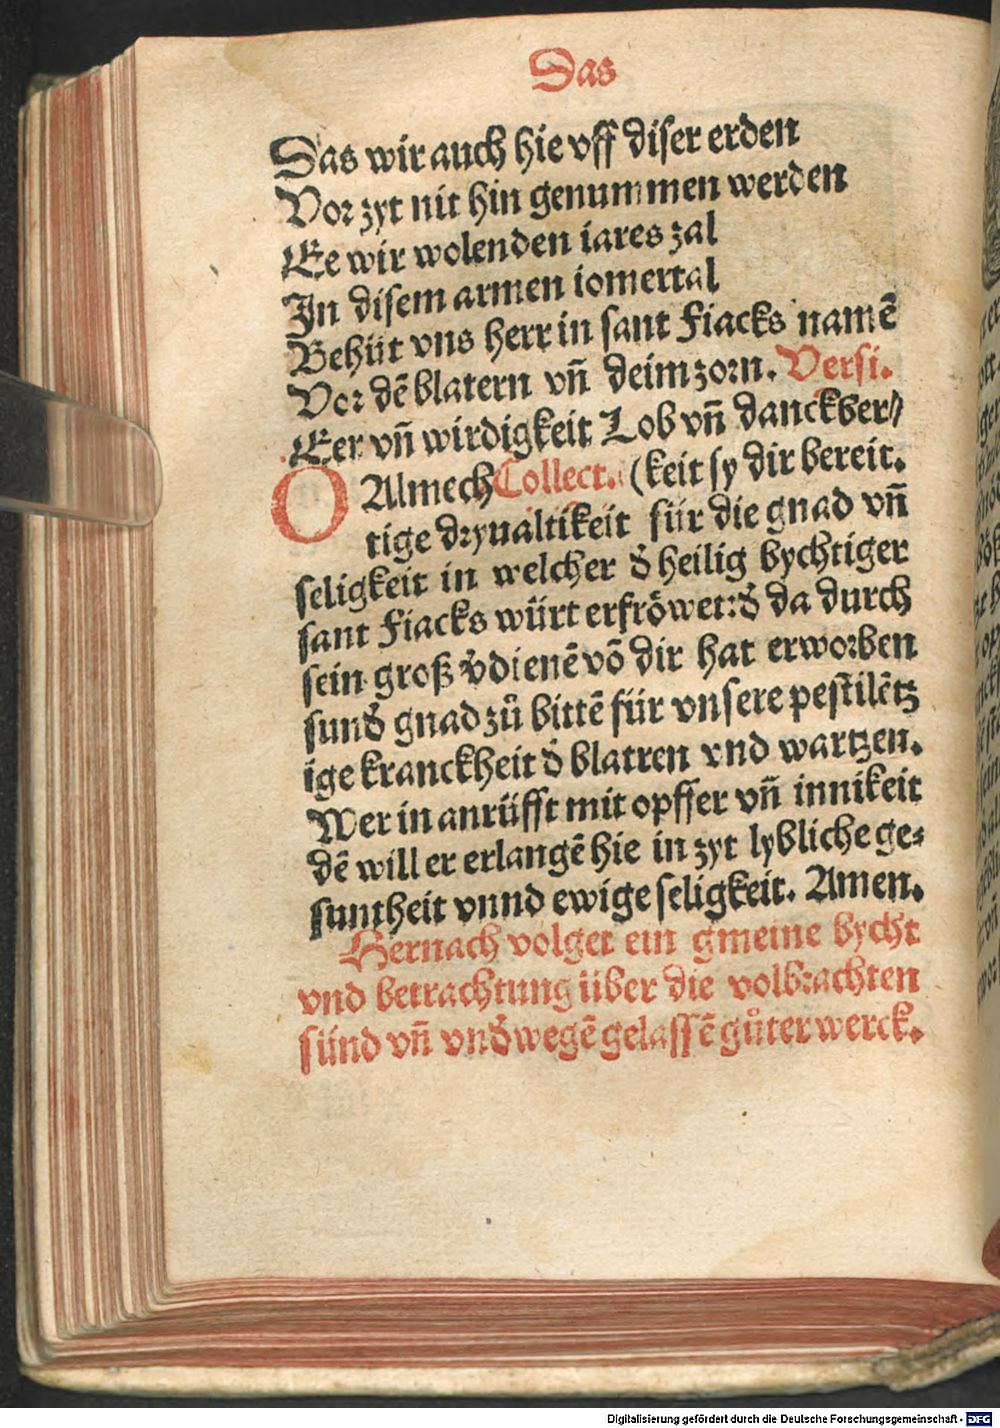 Das
Das wir auch hie vff diser erden
Vor zyt nit hin genummen werden
Ee wir wolenden iares zal
In disem armen iomertal
Behüt vns herr in sant Fiacks namē
Vor dē blatern vn̄ deim zorn. Versi.
Eer vn̄ wirdigkeit Lob vn̄ danckber/
O Almech Collect. (keit sy dir bereit.
tige dryualtikeit für die gnad vn̄
seligkeit in welcher d̓ heilig bychtiger
sant Fiacks würt erfröwet: d̓ da durch
sein groß v̓dienē vō dir hat erworben
sund̓ gnad zů bittē für vnsere pestilētz
ige kranckheit d̓ blatren vnd wartzen.
Wer in anrüfft mit opffer vn̄ innikeit
dē will er erlangē hie in zyt lybliche ge⸗
suntheit vnnd ewige seligkeit. Amen.
Hernach volget ein gmeine bycht
vnd betrachtung über die volbrachten
sünd vn̄ vnd̓wegē gelassē gůter werck.
Digitalisierung gefördert durch die Deutsche Forschungsgemeinschaft - DFG